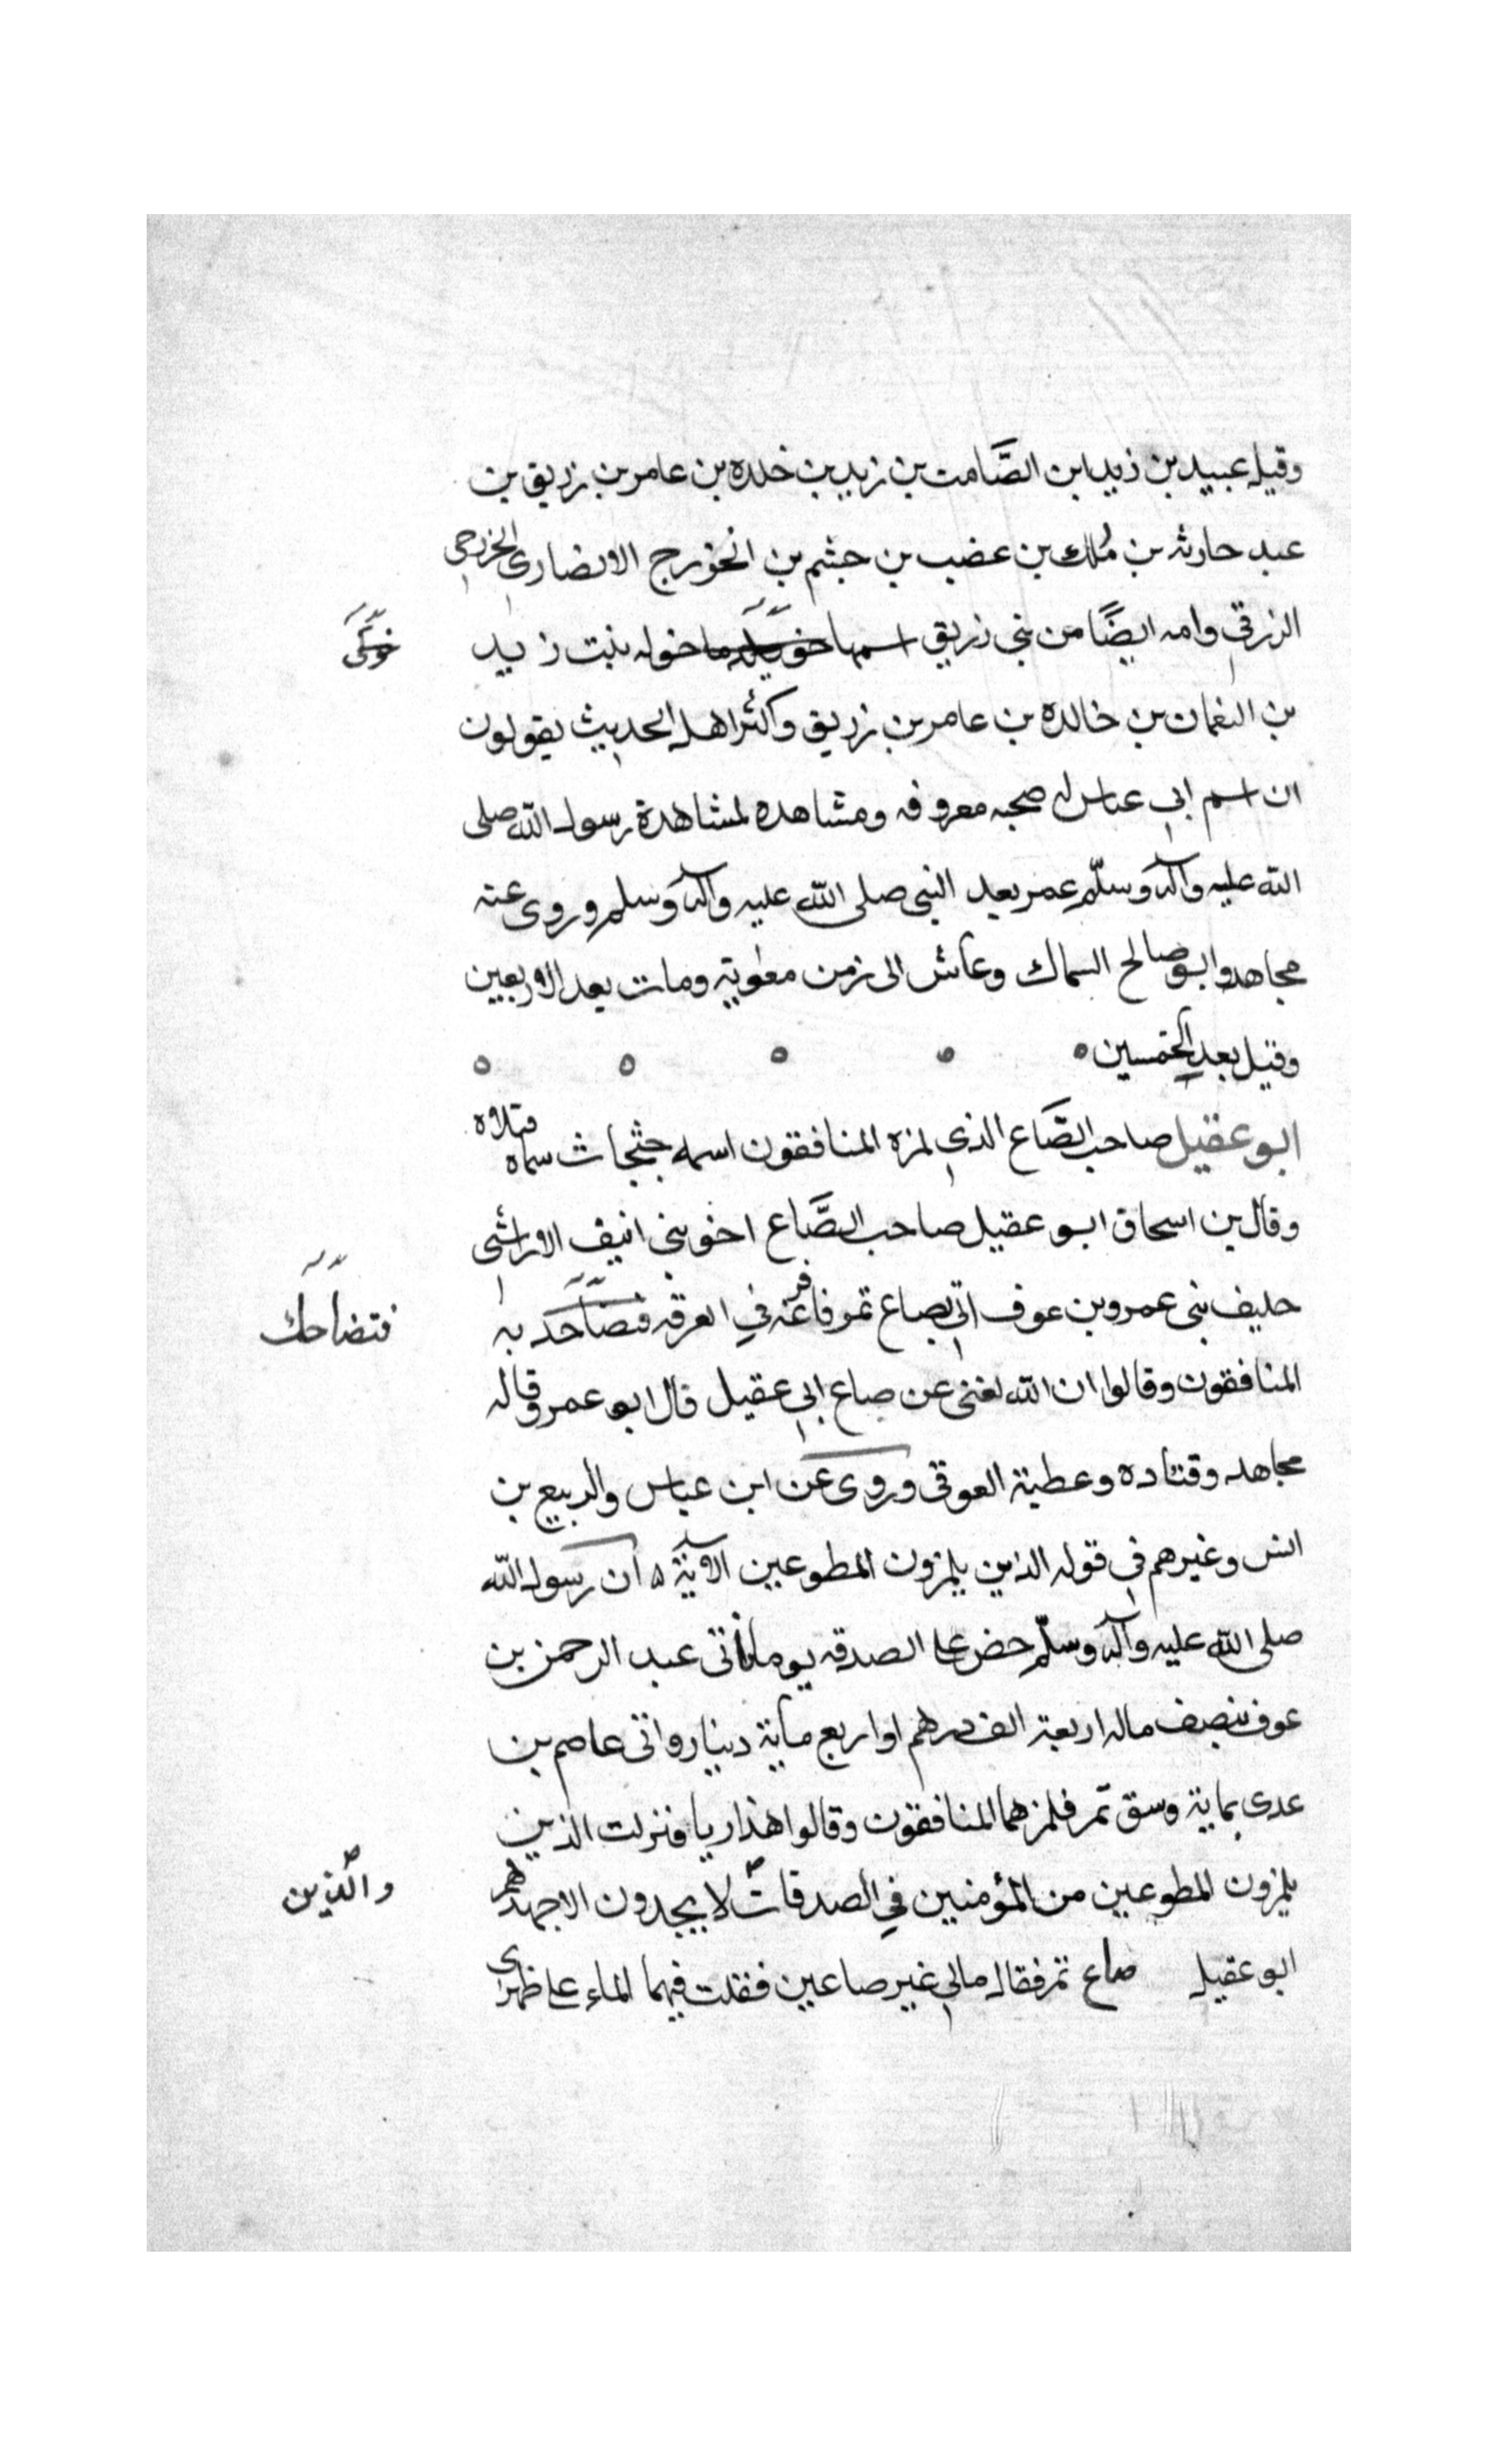 وقيل عبيد بن زيد ابن الصَّامت بن زيد بن خلده بن عامر بن زريق بن
عبد حارثه بن مُلك بن غضب بن جشم بن الخزرج الانصاري الخزرجي
الزرقي وامه ايضًا من بني زريق اسمها خولة بنت زيد
بن النعمان بن خالده بن عامر بن زريق واكثر اهل الحديث يقولون
ان اسم ابي عياس له صحبه معروفه ومشاهده لمشاهدة رسول الله صلى
الله عليه وآله وسلّم عمر بعد النبي صلى الله عليه وآله وسلم وروى عنه
مجاهد وابو صالح السماك وعاش الى زمن معاوية ومات بعد الاربعين
وقيل بعد الخمسين ه ه ه ه ه
ابو عقيل صاحب الصَّاع الذي لمزه المنافقون اسمه جثجاث سماه قتلاه
وقال بن اسحاق ابو عقيل صاحب الصَّاع اخو بني انيف الاراشي
حليف بني عمرو بن عوف اتى بصاع تمر فافرغه في الغرفه فتضاحك به
فتضاحك
المنافقون وقالوا ان الله لغني عن صاع ابي عقيل قال ابو عمر وقاله
مجاهد وقتاده وعطية العوفي وروى عن ابن عباس والربيع بن
انس وغيرهم في قوله الذين يلمزون المطوعين الآية ه ان رسول الله
صلى الله عليه وآله وسلّم حض على الصدقه يوما فاتى عبد الرحمن بن
عوف بنصف ماله اربعة الف درهم او اربع ماية دينار واتى عاصم بن
عدى بماية وسق تمر فلمزهما المنافقون وقالوا هذا ريا فنزلت الذين
يلمزون المطوعين من المؤمنين في الصدقات لا يجدون الا جهدهم
والذين
ابو عقيل صاع تمر فقال مالي غير صاعين فنقلت فيهما الماء على ظهرى